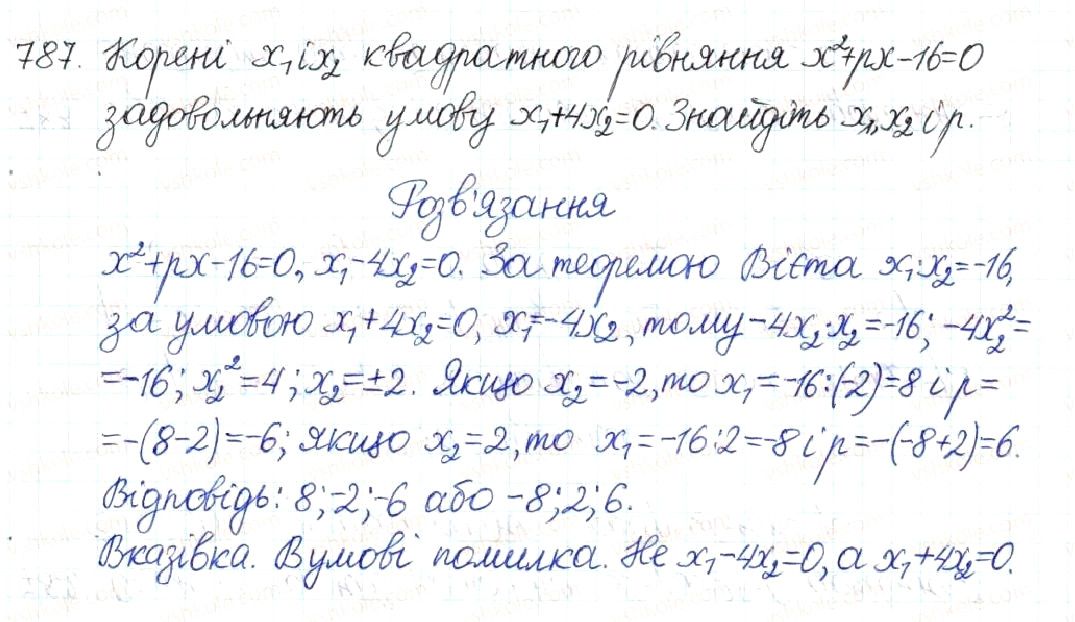 787. Корені x₁ і x₂ квадратного рівняння x²+px-16=0
задовольняють умову x₁+4x₂=0. Знайдіть x₁, x₂ і p.
Розв'язання
x²+px-16=0, x₁-4x₂=0. За теоремою Вієта x₁·x₂=-16,
за умовою x₁+4x₂=0, x₁=-4x₂, тому -4x₂·x₂=-16; -4x₂²=
=-16; x₂²=4; x₂=±2. Якщо x₂=-2, то x₁=-16:(-2)=8 і p=
=-(8-2)=-6; якщо x₂=2, то x₁=-16:2=-8 і p=-(-8+2)=6.
Відповідь: 8;-2;-6 або -8;2;6.
Вказівка. В умові помилка. Не x₁-4x₂=0, а x₁+4x₂=0.